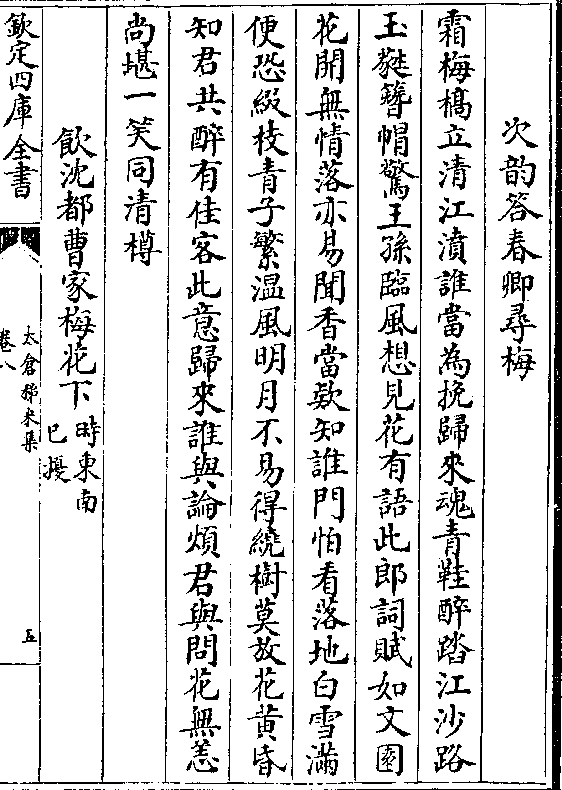 次韵答春卿尋梅
霜梅槁立清江濆誰當為挽歸來魂青鞋醉踏江沙路
玉蕤簪帽驚王孫臨風想見花有語此郎詞賦如文園
花開無情落亦易聞香當欵知誰門怕看落地白雪滿
便恐綴枝青子繁温風明月不易得繞樹莫放花黄昏
知君共醉有佳客此意歸來誰與論煩君與問花無恙
尚堪一笑同清樽
飲沈都曹家梅花下時東南已擾
欽定四庫全書
太倉稊米集
卷八
五